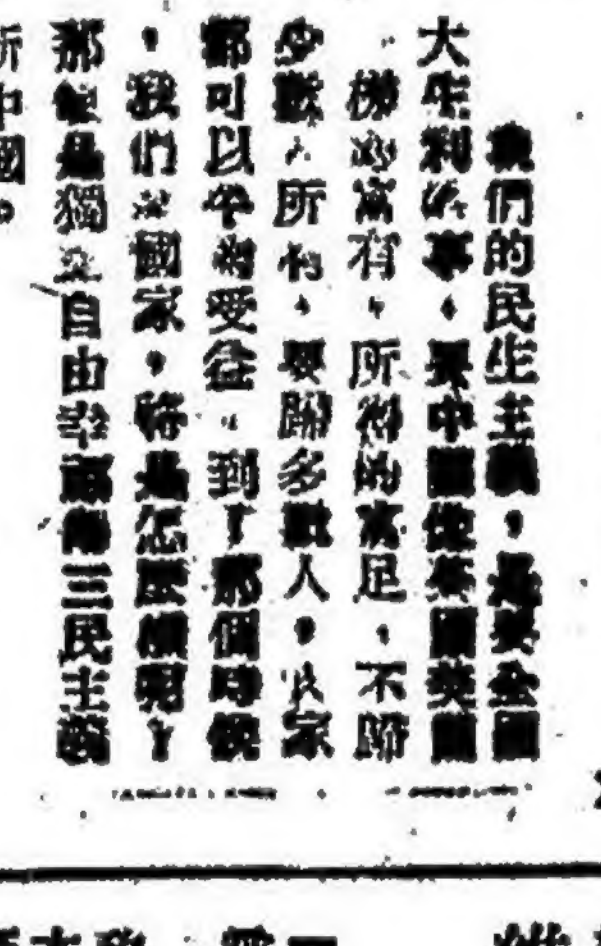 我們的民生主義，是要全國
大生利的事，要中國像英國美國
樣的富有，所得的富足，不歸
少數人所有，要歸多數人，大家
都可以平均受益。到了那個時候
，我們的國家，將是怎麼樣呢？
那便是獨立自由幸福的三民主義
新中國。